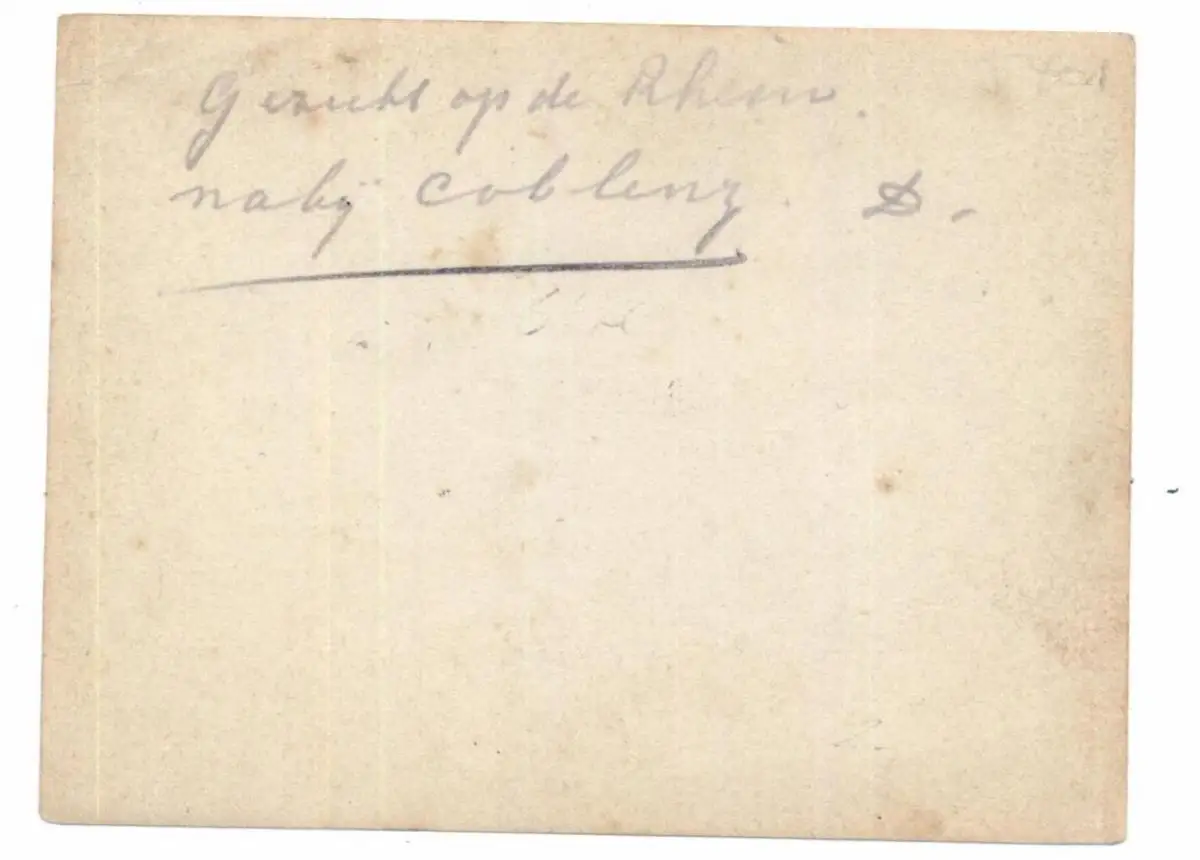 Gezicht op de Rhein.
nabij Coblenz. D.